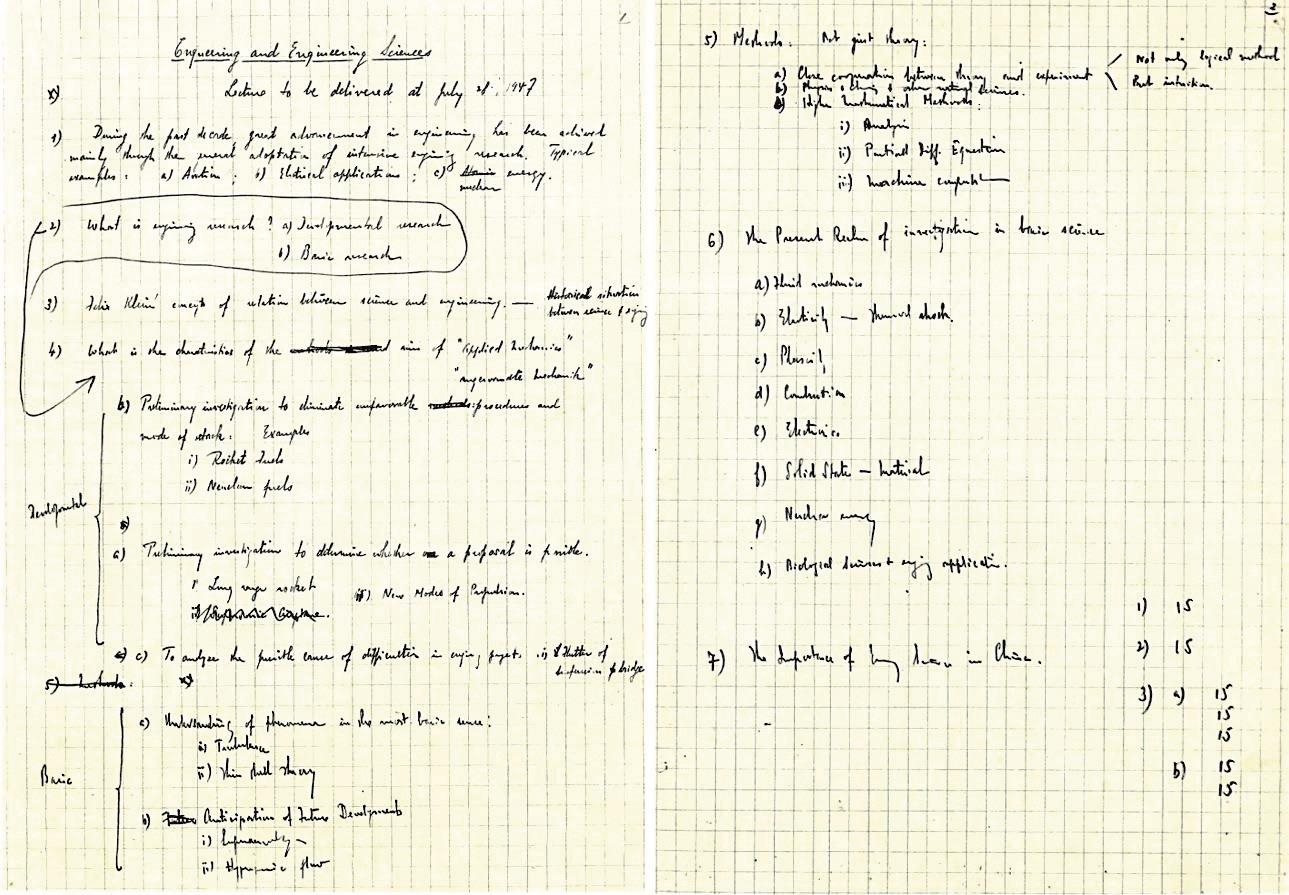 1
Engineering and Engineering Sciences
Lecture to be delivered at July 28, 1947
1) During the past decade, great advancement in engineering has been achieved
mainly through the general adoptation of intensive enging research. Typical
examples: a) Aviation; b) Electrical applications; c) Atomic energy.
nuclear
2) What is enging research? a) Developmental research
b) Basic research
3) Felix Klein' concept of relation between science and engineering. — Historical situation
between science & enging
4) What is the charateristics of the aim of "applied mechanics"
"angewandte Mechanik"
b) Preliminary investigation to eliminate unfavorable procedures and
mode of attack: Examples
i) Rocket fuels
ii) Nuclear fuels
Developmental
a) Preliminary investigation to determine whether a proposal is possible.
i Long range rocket ii) New Modes of Propulsion.
c) To analyze the possible cause of difficulties in enging projects. i) Flutter of
suspension bridge
5) Methods:
a) Understanding of phenomena in the most basic sense:
i) Turbulence
ii) Thin shell theory
Basic
b) Future Anticipation of Future Developments
i)
ii) Hypersonic flow
2
5) Methods: Not just theory:
a) Close cooperation between theory and experiment
Not only logical method
But intuition.
b) Physics & other natural sciences.
Higher Mathematical Methods:
i) Analysis
ii) Partial Diff. Equation
iii) machine
6) The Present Realm of investigation in basic science
a) Fluid mechanics
b) Elasticity — Thermal shock.
c) Plasticity
d) Combustion
e) Electronics
f) Solid State — Material
g) Nuclear energy
h) Biological Sciences & enging application.
7) The Importance of Enging Science in China.
1) 15
2) 15
3) a) 15
15
15
b) 15
15